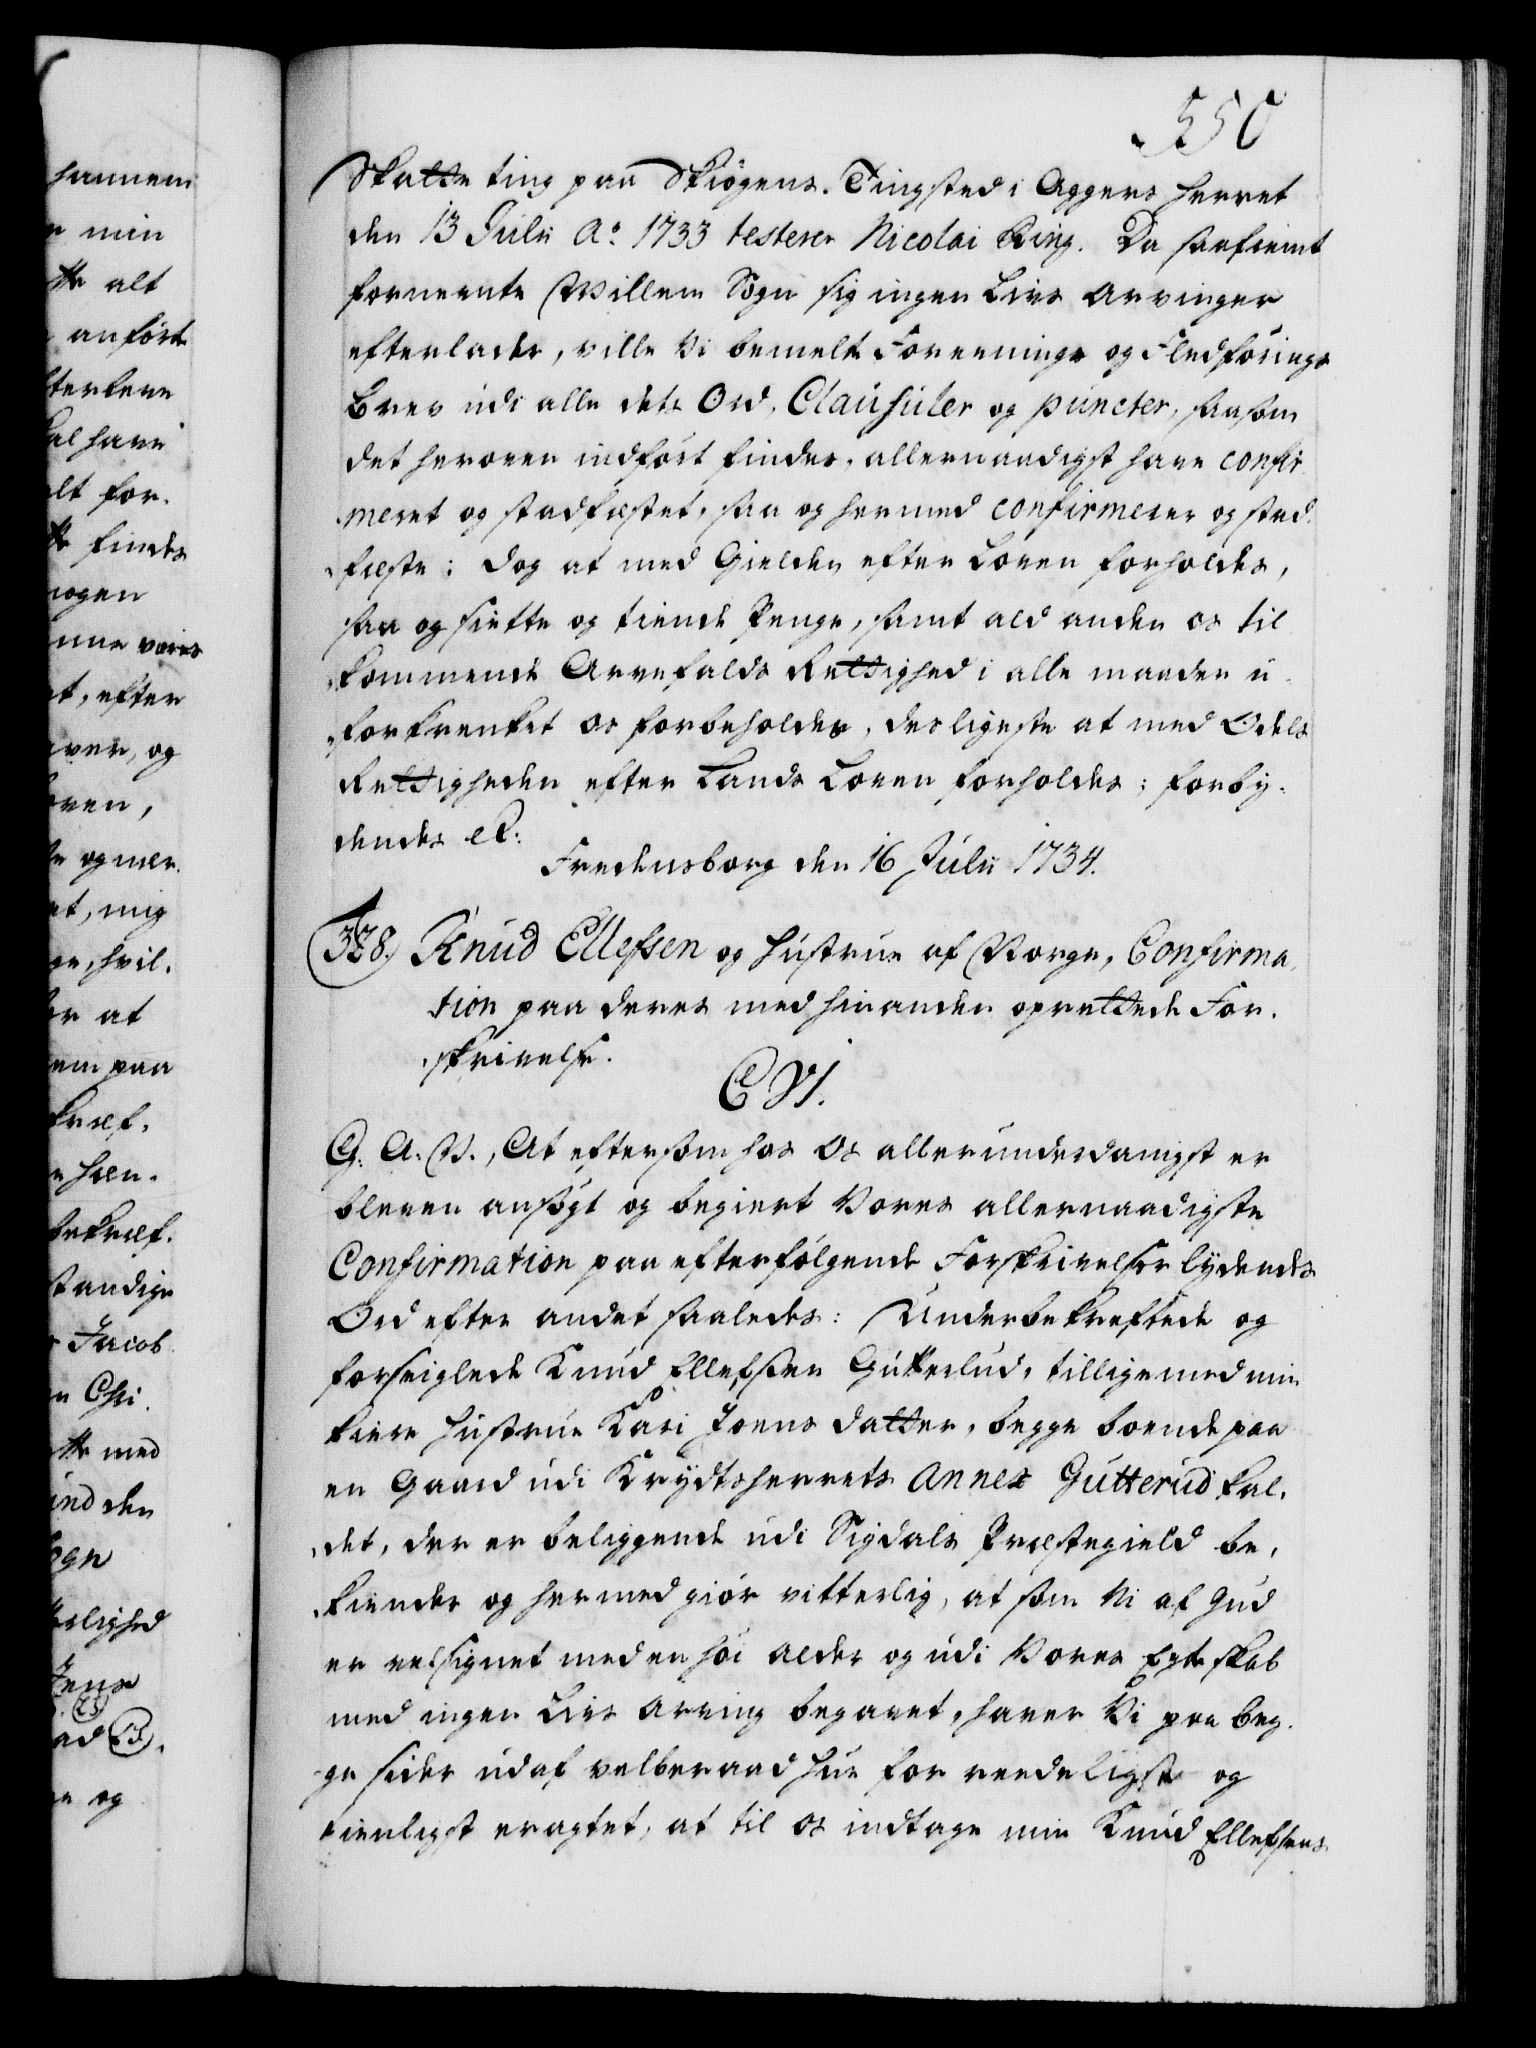 550
Skatte ting paa Skiøgens Tingsted i Aggers Herret
den 13 Julii Ao. 1733 testerer Nicolai Ring. Da saafremt
fornevnte Willem Sogn sig ingen Livs Arvinger
efterlader, ville Vi bemelte Foreenings og Fledførings
Brev udi alle dets Ord, Clausuler og puncter, saasom
det heroven indført findes, allernaadigst have confir
meret og stadfæstet, saa og hermed confirmerer og stad-
fæste; dog at med Gielden efter Loven forholdes,
saa og siette og tiende Penge, samt ald anden os til
kommende Arvefalds Rettighed i alle maader u-
forkrenket os forbeholdes, desligeste at med Odels
Rettigheden efter Lands Loven forholdes; forby-
dendes etc:
Fredensborg den 16 Julii 1734.
328. Knud Ellefsen og Hustrue af Norge, Confirma-
tion paa deres med hinanden oprettede For-
skrivelse.
C VI.
G. A. V., At eftersom hos Os allerunderdanigst er
bleven ansøgt og begiert Vores allernaadigste
Confirmation paa efterfølgende Forskrivelse lydendes
Ord efter andet saaledes: Underbekreftede og
forseiglede Knud Ellefsen Gutterud, tillige med min
kiere Hustrue Kari Joens datter, begge boende paa
en Gaard udi Krydtsherrets Annex Gutterud kal-
det, der er beliggende udi Sigdals Præstegield be-
kiender og hermed giør vitterlig, at som Vi af Gud
er velsignet med en høi alder og udi Vores Egteskab
med ingen Livs Arving begavet, haver Vi paa beg-
ge sider udaf velberaad Hue for reedeligst og
tienligst eragtet, at til os indtage min Knud Ellefsens